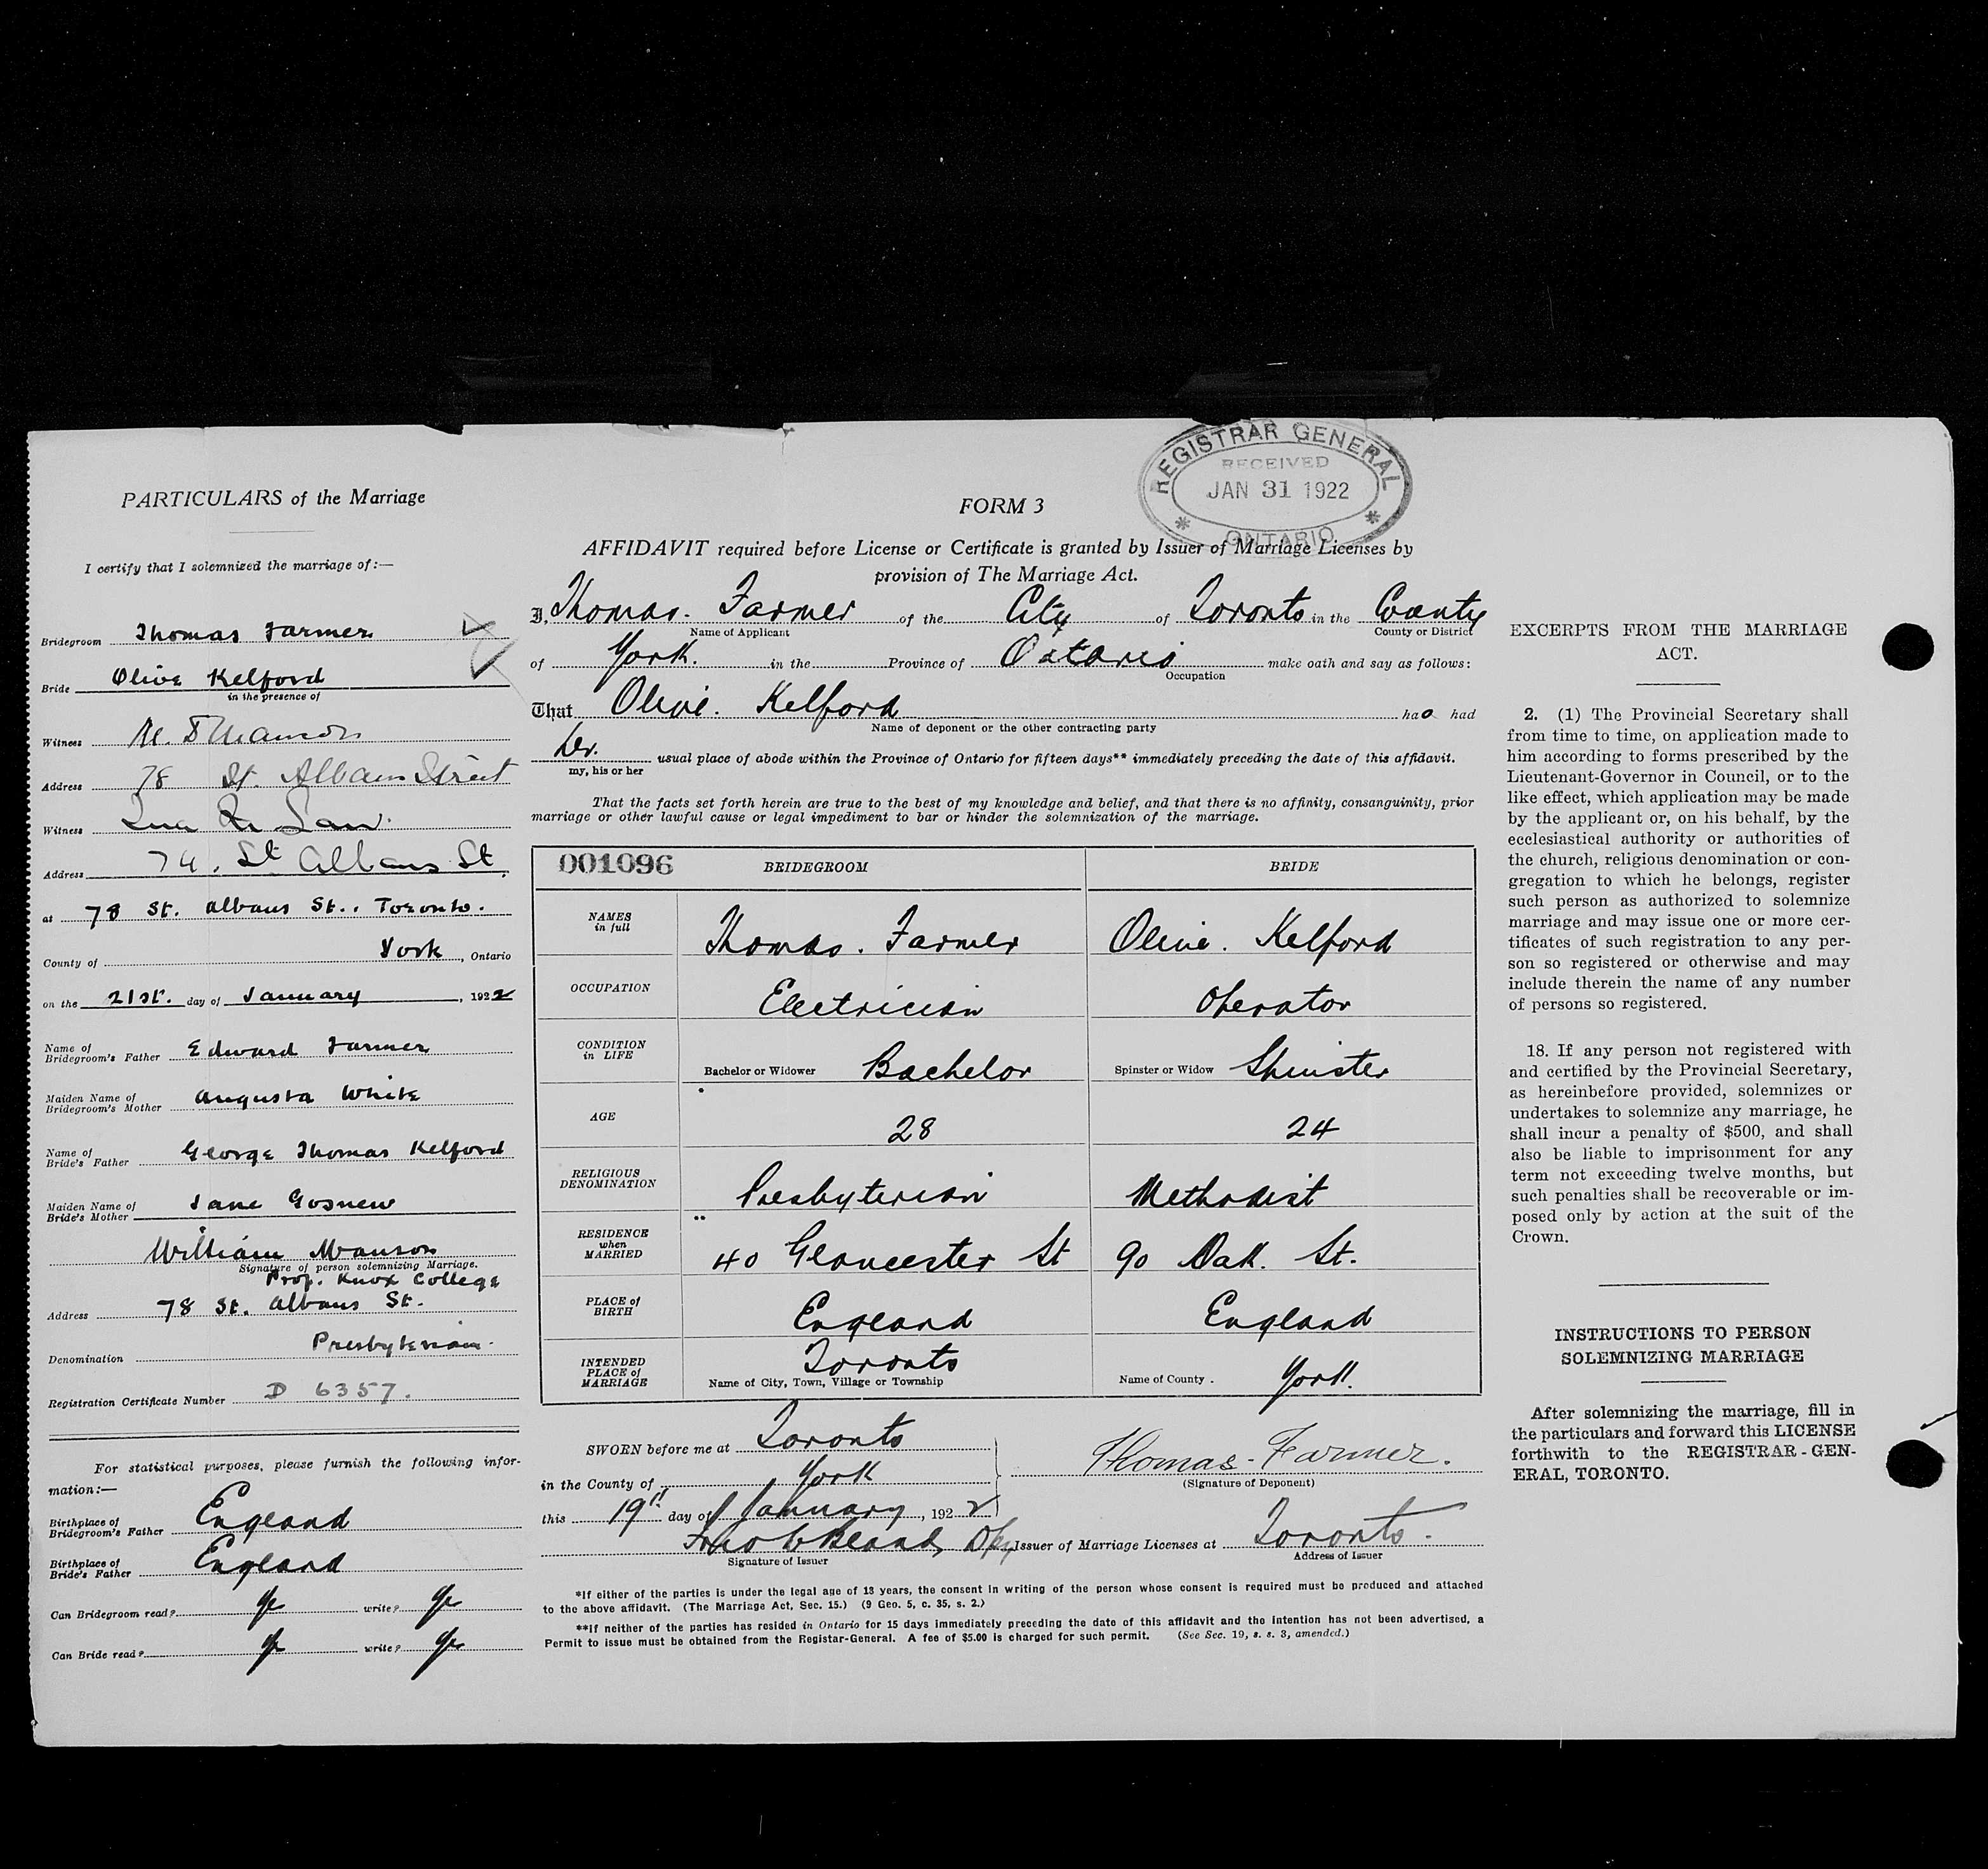 REGISTRAR GENERAL
RECEIVED
JAN 31 1922
ONTARIO
PARTICULARS of the Marriage
I certify that I solemnized the marriage of:—
Bridegroom Thomas Farmer
Bride Olive Kelford
in the presence of
Witness
Address 78 St. Albans Street
Witness Law.
Address 74, St Albans St.
at 78 St. Albans St., Toronto.
County of York, Ontario
on the 21st. day of January, 1922
Name of
Bridegroom's Father Edward Farmer
Maiden Name of
Bridegroom's Mother Augusta White
Name of
Bride's Father George Thomas Kelford
Maiden Name of
Bride's Mother Jane
William Manson
Signature of person solemnizing Marriage.
Prof. Knox College
Address 78 St. Albans St.
Denomination Presbyterian.
Registration Certificate Number D 6357.
For statistical purposes, please furnish the following infor-
mation:—
Birthplace of
Bridegroom's Father England
Birthplace of
Bride's Father England
Can Bridegroom read? write?
Can Bride read? write?
FORM 3
AFFIDAVIT required before License or Certificate is granted by Issuer of Marriage Licenses by
provision of The Marriage Act.
I, Thomas. Farmer of the City of Toronto in the County
Name of Applicant County or District
of York. in the Province of Ontario make oath and say as follows:
Occupation
That Olive. Kelford has had
Name of deponent or the other contracting party
her. usual place of abode within the Province of Ontario for fifteen days** immediately preceding the date of this affidavit.
my, his or her
That the facts set forth herein are true to the best of my knowledge and belief, and that there is no affinity, consanguinity, prior
marriage or other lawful cause or legal impediment to bar or hinder the solemnization of the marriage.
001096 BRIDEGROOM BRIDE
NAMES
in full Thomas. Farmer Olive. Kelford
OCCUPATION Electrician Operator
CONDITION
in LIFE Bachelor or Widower Bachelor Spinster or Widow Spinster
AGE 28 24
RELIGIOUS
DENOMINATION Presbyterian Methodist
RESIDENCE
when
MARRIED 40 Gloucester St 90 Oak. St.
PLACE of
BIRTH England England
INTENDED
PLACE of
MARRIAGE Toronto York.
Name of City, Town, Village or Township Name of County.
SWORN before me at Toronto
in the County of York
this 19th day of January, 1922
Thomas. Farmer.
(Signature of Deponent)
Issuer of Marriage Licenses at Toronto.
Signature of Issuer Address of Issuer
*If either of the parties is under the legal age of 18 years, the consent in writing of the person whose consent is required must be produced and attached
to the above affidavit. (The Marriage Act, Sec. 15.) (9 Geo. 5, c. 35, s. 2.)
**If neither of the parties has resided in Ontario for 15 days immediately preceding the date of this affidavit and the intention has not been advertised, a
Permit to issue must be obtained from the Registar-General. A fee of $5.00 is charged for such permit. (See Sec. 19, s. s. 3, amended.)
EXCERPTS FROM THE MARRIAGE
ACT.
2. (1) The Provincial Secretary shall
from time to time, on application made to
him according to forms prescribed by the
Lieutenant-Governor in Council, or to the
like effect, which application may be made
by the applicant or, on his behalf, by the
ecclesiastical authority or authorities of
the church, religious denomination or con-
gregation to which he belongs, register
such person as authorized to solemnize
marriage and may issue one or more cer-
tificates of such registration to any per-
son so registered or otherwise and may
include therein the name of any number
of persons so registered.
18. If any person not registered with
and certified by the Provincial Secretary,
as hereinbefore provided, solemnizes or
undertakes to solemnize any marriage, he
shall incur a penalty of $500, and shall
also be liable to imprisonment for any
term not exceeding twelve months, but
such penalties shall be recoverable or im-
posed only by action at the suit of the
Crown.
INSTRUCTIONS TO PERSON
SOLEMNIZING MARRIAGE
After solemnizing the marriage, fill in
the particulars and forward this LICENSE
forthwith to the REGISTRAR-GEN-
ERAL, TORONTO.